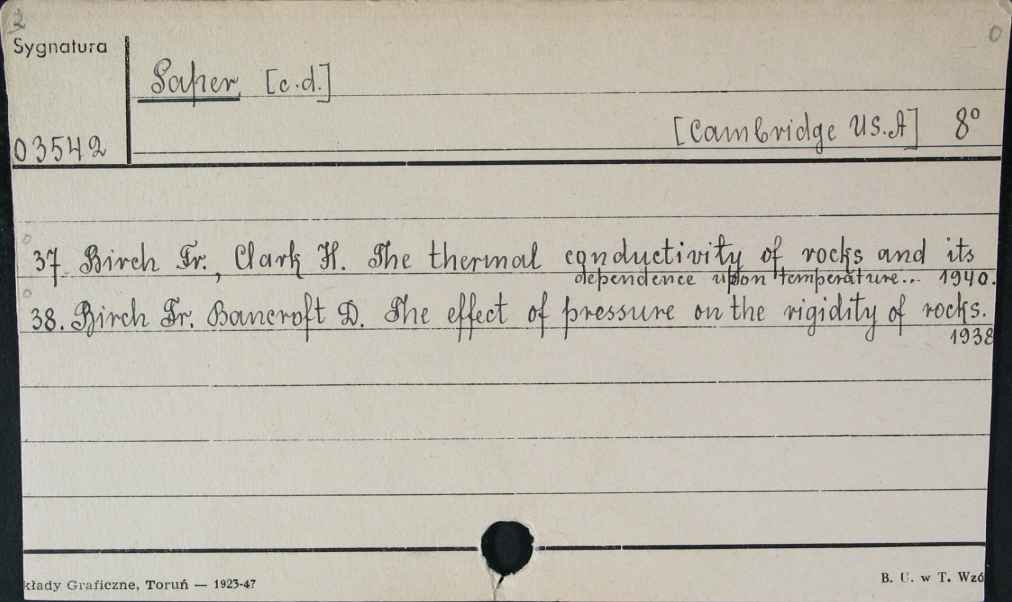 2
0
Sygnatura
Paper [c.d.]
[Cambridge US.A] 8°
03542
37. Birch Fr., Clark H. The thermal conductivity of rocks and its
dependence upon temperature... 1940.
38. Birch Fr. Bancroft D. The effect of pressure on the rigidity of rocks.
1938
kłady Graficzne, Toruń — 1923-47
B. U. w T. Wzó